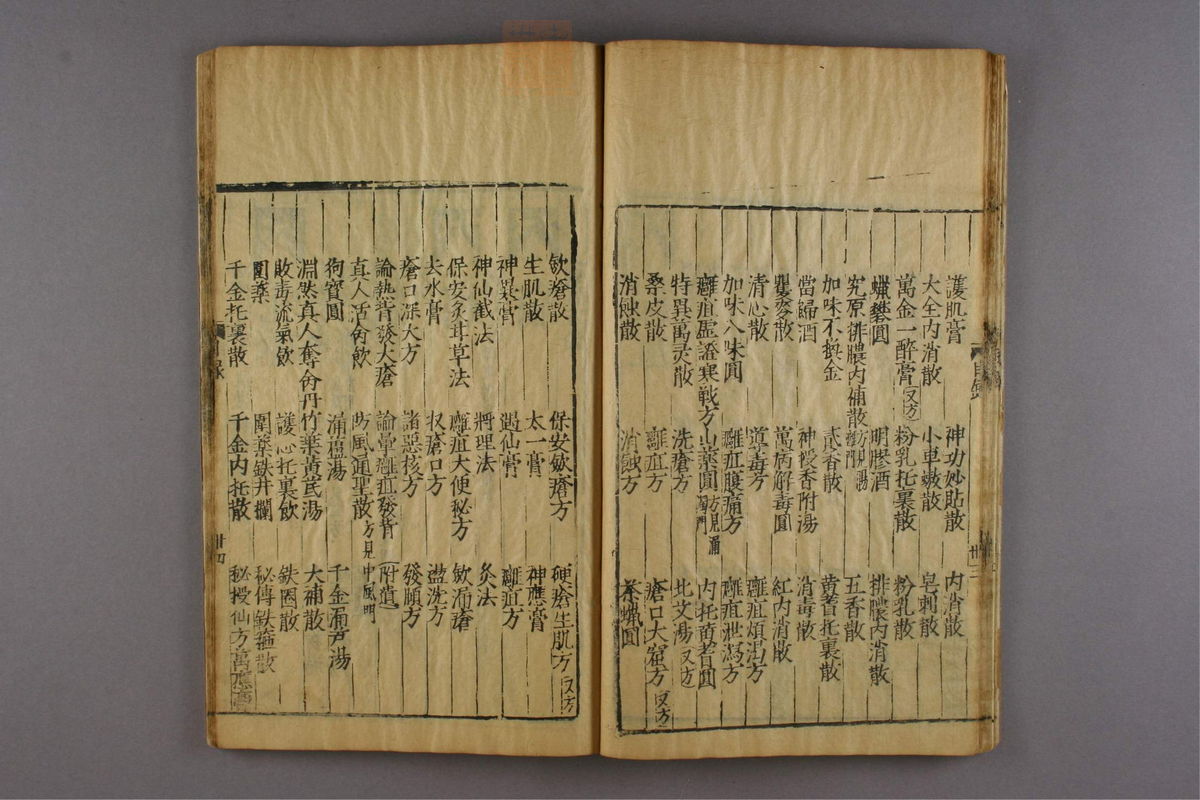 護肌膏 神功妙貼散 内消散
大全内消散 小車螯散 皂刺散
萬金一醉膏又方 粉乳托裏散 粉乳散
蠟礬圓 明膠酒 排膿内消散
究原排膿内補散方見漏瘡門 五香散
加味不換金 貳香散 黄耆托裏散
當歸酒 神授香附湯 消毒散
瞿麥散 萬病解毒圓 紅内消散
清心散 導毒 癰疽煩渇方
加味八味圓 癰疽腹痛方 癰疽泄瀉方
癰疽虚證寒戰方 山藥圓方見漏門 内托黄耆圓
特異萬灵散 洗瘡方 北艾湯又方
桑皮散 癰疽方 瘡口大窟方又方
消蝕散 消蝕方 茶蠟圓
目錄
斂瘡散 保安斂瘡方 硬瘡生肌方又方
生肌散 太一膏 神應膏
神異膏 遇仙膏 癰疽方
神仙截法 將理法 灸法
保安炙甘草法 癰疽大便秘方 斂漏瘡
去水膏 收瘡口方 盪洗方
瘡口深大方 諸惡核方 發頤方
論熱背發大瘡 論曽癰疽發背 附遺
直人活命飲 防風通聖散方見中風門
狗寶圓 漏蘆湯 千金漏芦湯
淵然真人奪命丹 竹葉黄芪湯 大補散
敗毒流氣飲 護心托裏飲 鉄圈散
圍藥 圍藥鉄井欄 秘傳鉄箍散
千金托裏散 千金内托散 秘授仙方萬應膏
目錄 卅四